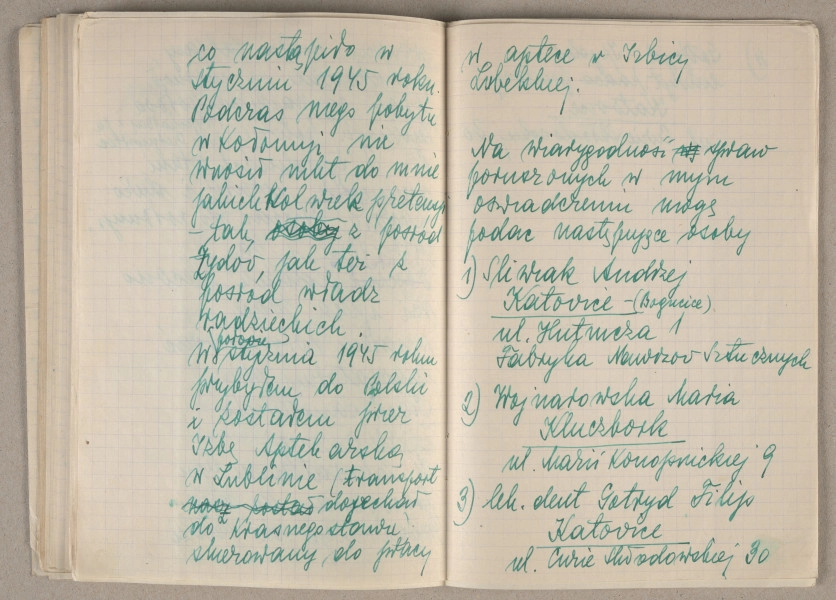 co nastąpiło w
styczniu 1945 roku.
Podczas mego pobytu
w Kołomyji nie
wnosił nikt do mnie
jakichkolwiek pretensji
- tak, osoby z pośród
Żydów, jak też z
pośród władz
radzieckich.
W styczniu 1945 roku
przybyłem do Polski
i zostałem przez
Izbę Aptekarską
w Lublinie (transport
nasz został dojechał
do Krasnegostawu
skierowany do pracy
w aptece w Izbicy
Lubelskiej.
Na wiarygodność spraw
poruszonych w mym
oświadczeniu mogę
podać następujące osoby
1) Śliwiak Andrzej
Katowice - (Bogucice)
ul. Hutnicza 1
Fabryka Nawozów Sztucznych
2) Wojnarowska Maria
Kluczbork
ul. Marii Konopnickiej 9
3) lek. dent Gotryd Filip
Katowice
ul. Curie Skłodowskiej 30